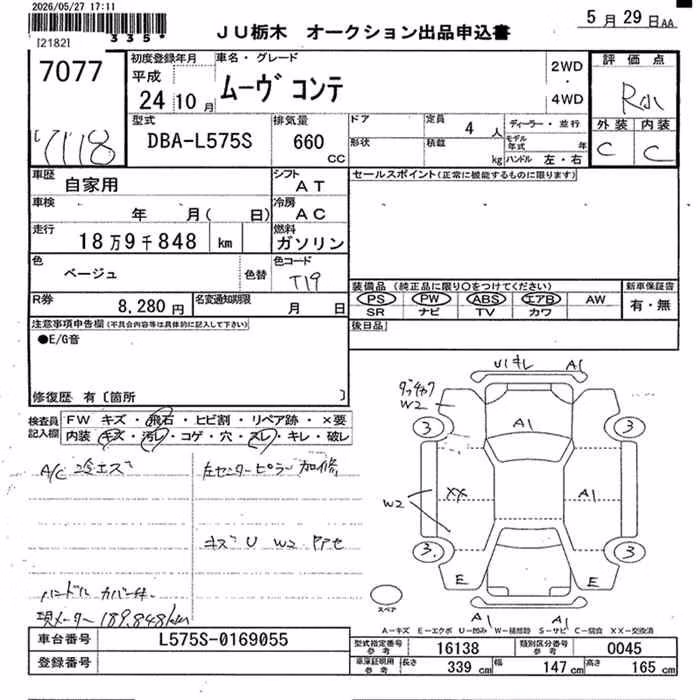 2026/05/27 17:11
[2182]
335*
JU栃木 オークション出品申込書
5月29日AA
7077
初度登録年月
平成
24 10月
車名・グレード
ムーヴ コンテ
2WD
・
4WD
評価点
外装 内装
C C
型式
DBA-L575S
排気量
660
CC
ドア
定員
4人
ディーラー・並行
形状
積載
kg
モデル年式 年
ハンドル 左・右
車歴
自家用
シフト
AT
セールスポイント(正常に機能するものに限ります)
車検
年 月( 日)
冷房
AC
走行
18万9千848 km
燃料
ガソリン
色
ベージュ
色替
色コード
T19
装備品 (純正品に限り○をつけてください)
PS PW ABS エアB AW
SR ナビ TV カワ
新車保証書
有・無
R券
8,280円
名変通知期限
月 日
後日品
注意事項申告欄(不具合内容等は具体的に記入して下さい)
●E/G音
修復歴 有〔箇所 〕
検査員記入欄
FW キズ・飛石・ヒビ割・リペア跡・×要
内装・キズ・汚レ・コゲ・穴・スレ・キレ・破レ
A/C 冷エズ
左センターピラー 加修
キズ U W2
ハンドル カバー
現メーター 189,848km
U1 キレ A1
W2
3 3
A1
W2
XX
A1
3 3
E E
A1 A1
スペア
A-キズ E-エクボ U-凹み W-補修跡 S-サビ C-腐食 XX-交換済
車台番号
L575S-0169055
登録番号
型式指定番号 参考
16138
類別区分番号 参考
0045
車庫証明用 参考
長さ 339cm
幅 147cm
高さ 165cm